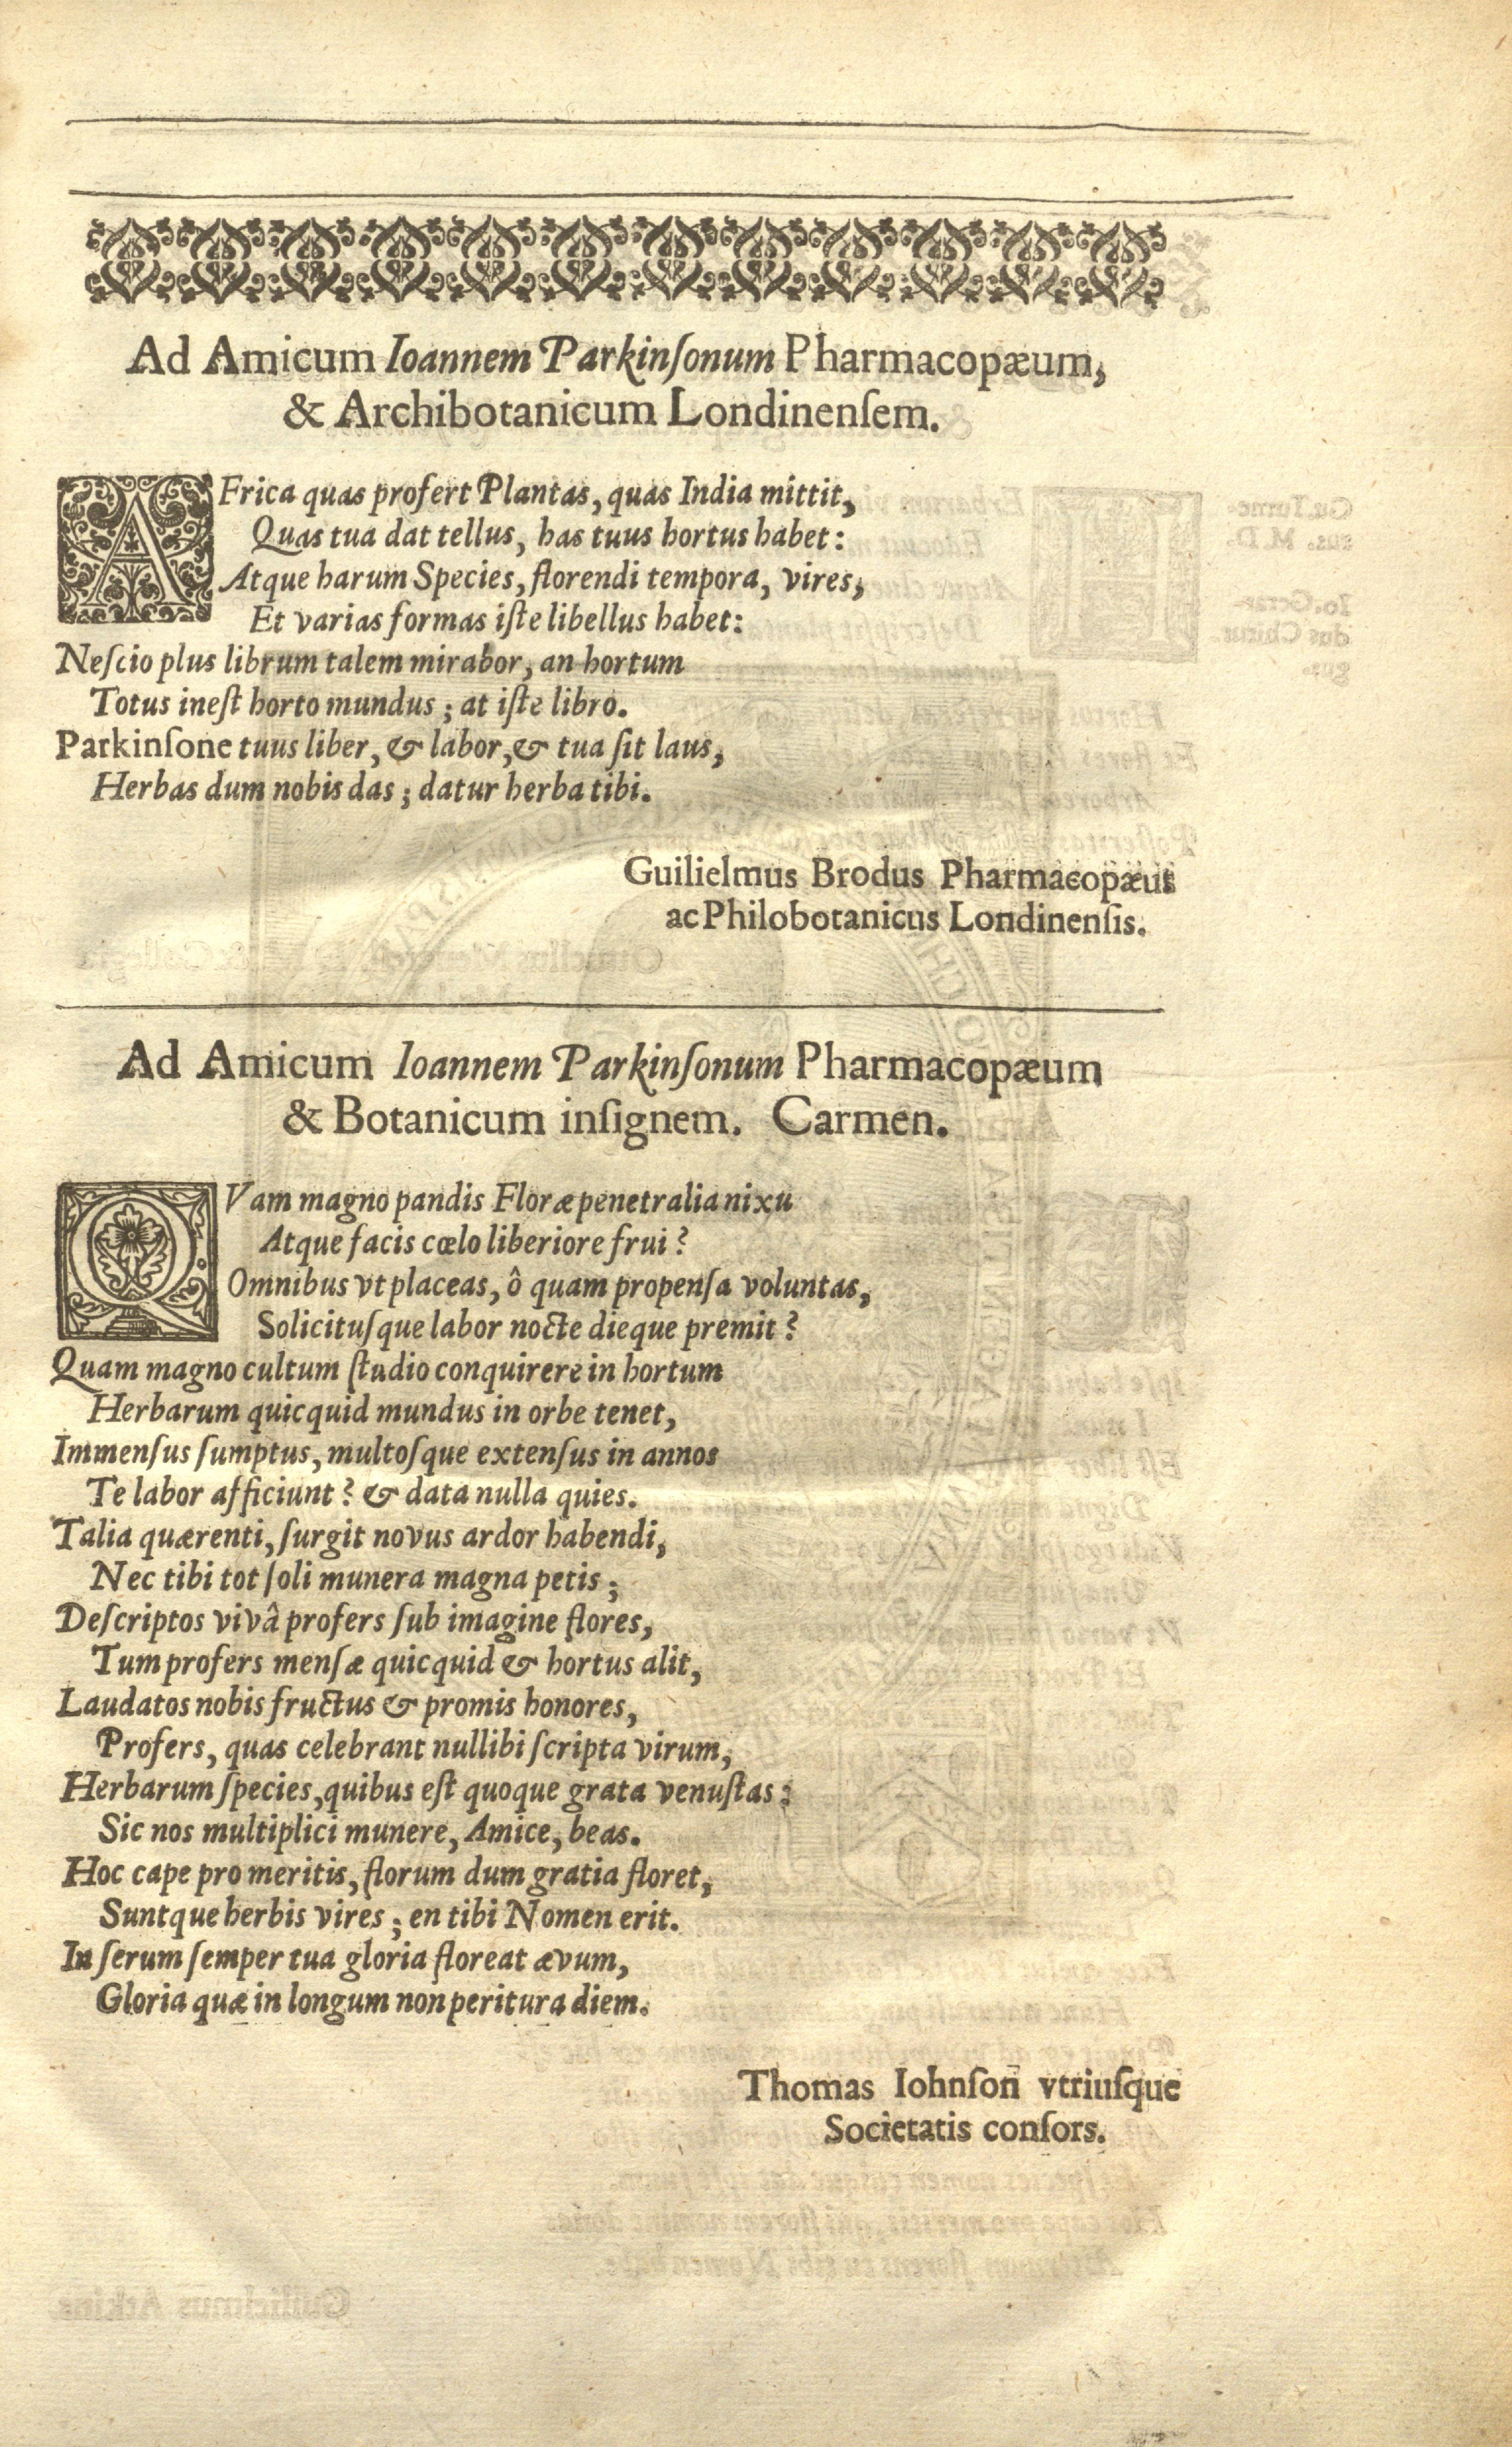 Ad Amicum Ioannem Parkinſonum Pharmacopæum,
& Archibotanicum Londinenſem.
AFrica quas profert Plantas, quas India mittit,
Quas tua dat tellus, has tuus hortus habet:
Atque harum Species, florendi tempora, vires,
Et varias formas iſte libellus habet:
Neſcio plus librum talem mirabor, an hortum
Totus ineſt horto mundus; at iſte libro.
Parkinſone tuus liber, & labor, & tua ſit laus,
Herbas dum nobis das; datur herba tibi.
Guilielmus Brodus Pharmacopæus
ac Philobotanicus Londinenſis.
Ad Amicum Ioannem Parkinſonum Pharmacopæum
& Botanicum inſignem. Carmen.
QVam magno pandis Floræ penetralia nixu
Atque facis cœlo liberiore frui?
Omnibus vt placeas, ô quam propenſa voluntas,
Solicituſque labor nocte dieque premit?
Quam magno cultum ſtudio conquirere in hortum
Herbarum quicquid mundus in orbe tenet,
Immenſus ſumptus, multoſque extenſus in annos
Te labor afficiunt? & data nulla quies.
Talia quærenti, ſurgit novus ardor habendi,
Nec tibi tot ſoli munera magna petis;
Deſcriptos vivâ profers ſub imagine flores,
Tum profers menſæ quicquid & hortus alit,
Laudatos nobis fructus & promis honores,
Profers, quas celebrant nullibi ſcripta virum,
Herbarum ſpecies, quibus eſt quoque grata venuſtas:
Sic nos multiplici munere, Amice, beas.
Hoc cape pro meritis, florum dum gratia floret,
Suntque herbis vires; en tibi Nomen erit.
In ſerum ſemper tua gloria floreat ævum,
Gloria quæ in longum non peritura diem.
Thomas Iohnſon vtriuſque
Societatis conſors.